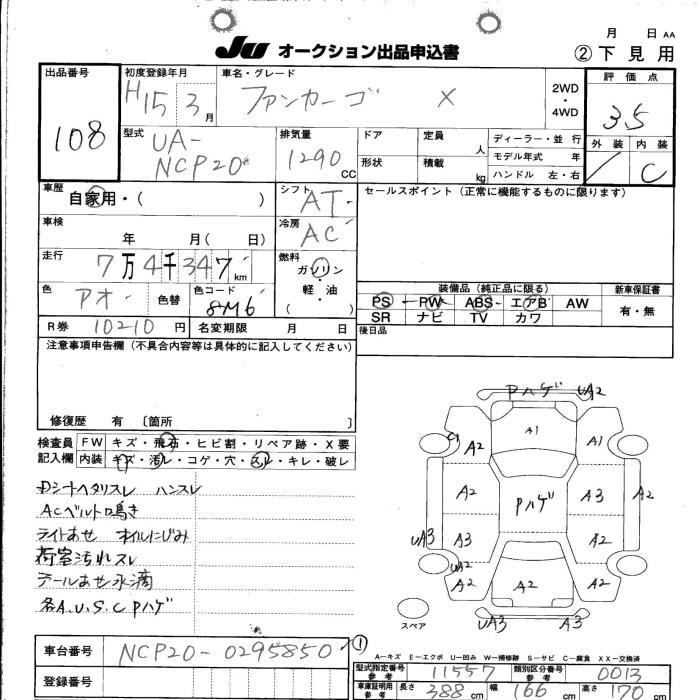 月 日 AA
JU オークション出品申込書 ② 下見用
出品番号 初度登録年月 車名・グレード 評価点
108 H15 3月 ファンカーゴ X 2WD・4WD 3.5
型式 排気量 ドア 定員 人 ディーラー・並行 外装 内装
UA-NCP20 1290 CC 形状 積載 kg モデル年式 年 C
ハンドル 左・右
車歴 自家用・( ) シフト AT セールスポイント(正常に機能するものに限ります)
車検 年 月( 日) 冷房 AC
走行 7万4千347km 燃料 ガソリン・軽・油 ( )
装備品(純正品に限る) 新車保証書
色 アオ 色替 色コード 8M6 PS PW ABS エアB AW 有・無
SR ナビ TV カワ
R券 10210円 名変期限 月 日 後日品
注意事項申告欄(不具合内容等は具体的に記入してください)
修復歴 有 〔箇所 〕
検査員記入欄 FW キズ・飛石・ヒビ割・リペア跡・X要
内装 キズ・汚レ・コゲ・穴・スレ・キレ・破レ
Dシートヘタリスレ ハンスレ
ACベルト鳴き
ライトあせ オイルにじみ
荷室汚れスレ
テールあせ水滴
各A.U.S.C Pハゲ
Pハゲ UA2
C1 A2 A1 A1
A2 Pハゲ A3 A2
UA3 A3 A2
UA2 A2 A2 A2
スペア UA3 A3
A−キズ E−エクボ U−凹み W−補修跡 S−サビ C−腐食 XX−交換済
車台番号 NCP20-0295850 ①
型式指定番号 11557 類別区分番号 0013
登録番号 車庫証明用参考 長さ 388cm 幅 166cm 高さ 170cm